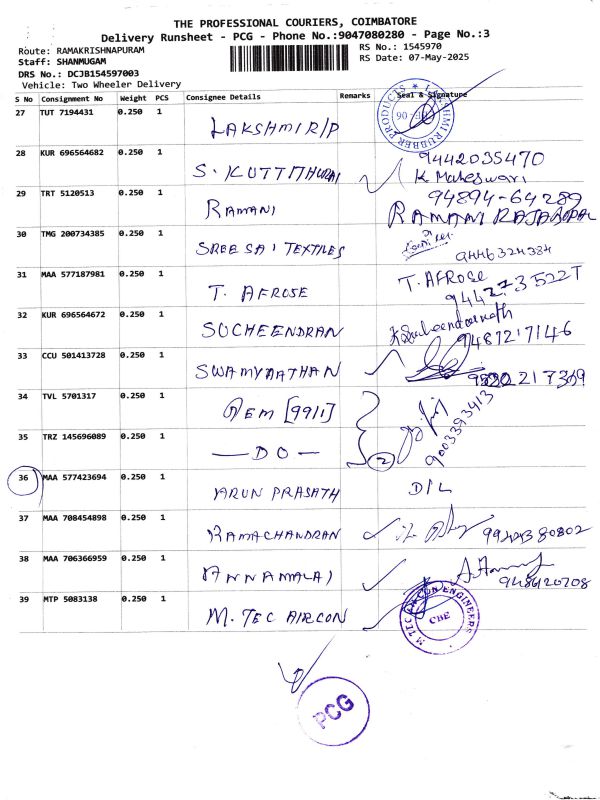 THE PROFESSIONAL COURIERS, COIMBATORE
Delivery Runsheet - PCG - Phone No.:9047080280 - Page No.:3
Route: RAMAKRISHNAPURAM RS No.: 1545970
Staff: SHANMUGAM RS Date: 07-May-2025
DRS No.: DCJB154597003
Vehicle: Two Wheeler Delivery
S No Consignment No Weight PCS Consignee Details Remarks Seal & Signature
27 TUT 7194431 0.250 1 LAKSHMI R/P
LAKSHMI RUBBER PRODUCTS
28 KUR 696564682 0.250 1 S. KUTTITHURAI 9442035470
K Maheswari
29 TRT 5120513 0.250 1 RAMANI 94894-64289
RAMANI RAJAGOPAL
30 TMG 200734385 0.250 1 SREE SAI TEXTILES 9446324384
31 MAA 577187981 0.250 1 T. AFROSE T. AFROSE
32 KUR 696564672 0.250 1 SUCHEENDRAN
9487217146
33 CCU 501413728 0.250 1 SWAMYNATHAN
34 TVL 5701317 0.250 1 AEM [9911]
9003393413
35 TRZ 145696089 0.250 1 — DO — 2
36 MAA 577423694 0.250 1 ARUN PRASATH D/L
37 MAA 708454898 0.250 1 RAMACHANDRAN
38 MAA 706366959 0.250 1 ANNAMALAI
39 MTP 5083138 0.250 1 M. TEC AIRCON
M TEC AIR CON ENGINEERS
CBE
PCG